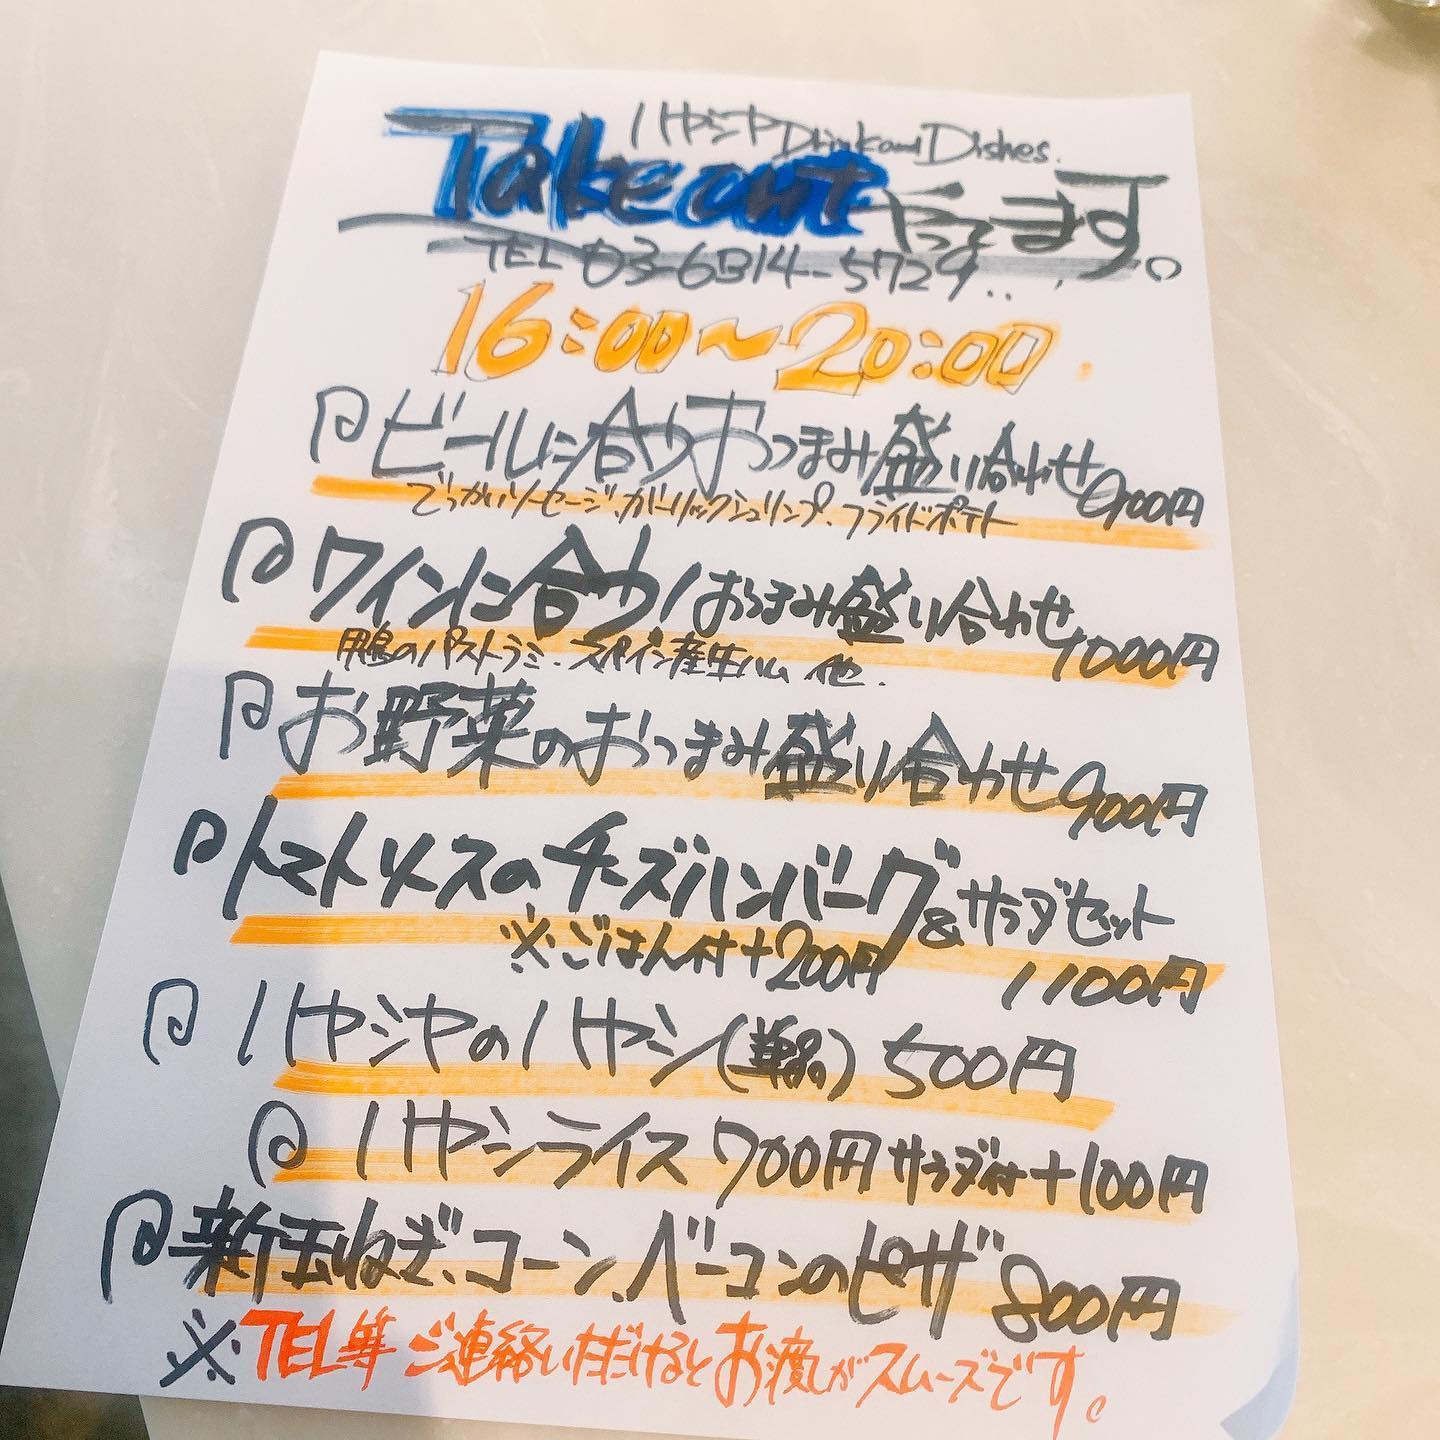 ハヤシヤ Drink and Dishes.
Take out やってます。
TEL 03-6314-5729..
16:00〜20:00.
ビールに合うおつまみ盛り合わせ 900円
でっかいソーセージ、ガーリックシュリンプ、フライドポテト
ワインに合うおつまみ盛り合わせ 1000円
鴨のパストラミ、スペイン産生ハム 他.
お野菜のおつまみ盛り合わせ 900円
トマトソースのチーズハンバーグ&サラダセット
※ごはん付+200円 1100円
ハヤシヤのハヤシ(単品) 500円
ハヤシライス 700円 サラダ付+100円
新玉ねぎ、コーン、ベーコンのピザ 800円
※TEL等ご連絡いただけるとお渡しがスムーズです。